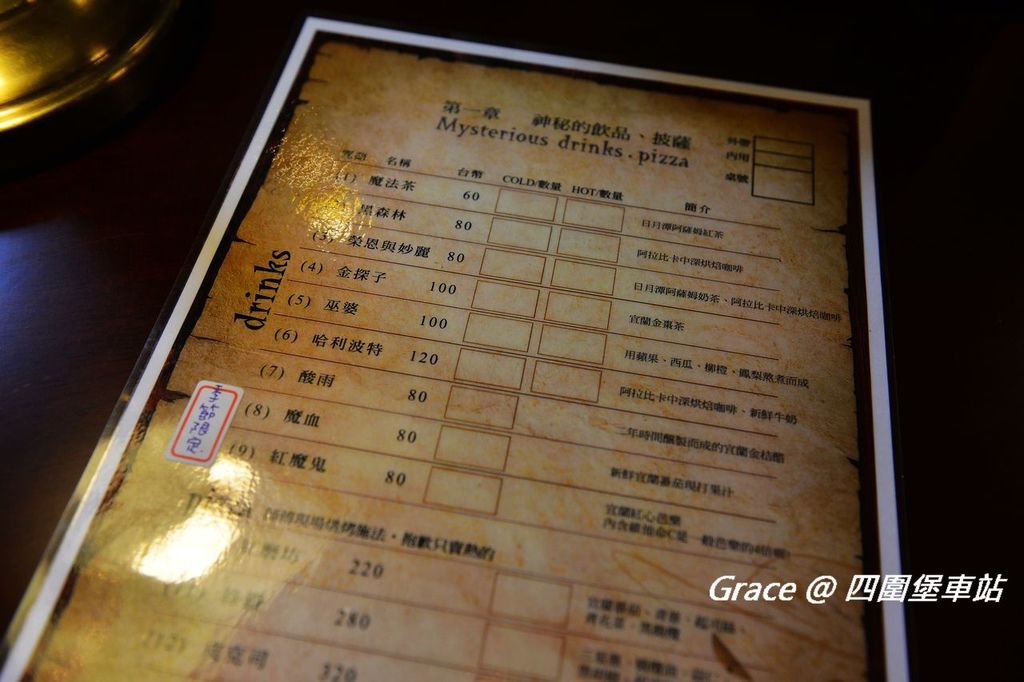 第一章 神秘的飲品、披薩
Mysterious drinks.pizza
外帶
內用
桌號
咒語 名稱 台幣 COLD/數量 HOT/數量 簡介
drinks
(1) 魔法茶 60 日月潭阿薩姆紅茶
黑森林 80 阿拉比卡中深烘焙咖啡
(3) 榮恩與妙麗 80 日月潭阿薩姆奶茶、阿拉比卡中深烘焙咖啡
(4) 金探子 100 宜蘭金棗茶
(5) 巫婆 100 用蘋果、西瓜、柳橙、鳳梨熬煮而成
(6) 哈利波特 120 阿拉比卡中深烘焙咖啡、新鮮牛奶
(7) 酸雨 80 二年時間釀製而成的宜蘭金桔醋
季節限定
(8) 魔血 80 新鮮宜蘭蕃茄現打果汁
(9) 紅魔鬼 80 宜蘭紅心芭樂
內含維他命C是一般芭樂的
師傅現場烘烤施法，抱歉只賣熱的
紅磨坊 220
280
(12) 麥克司 320
Grace @ 四圍堡車站